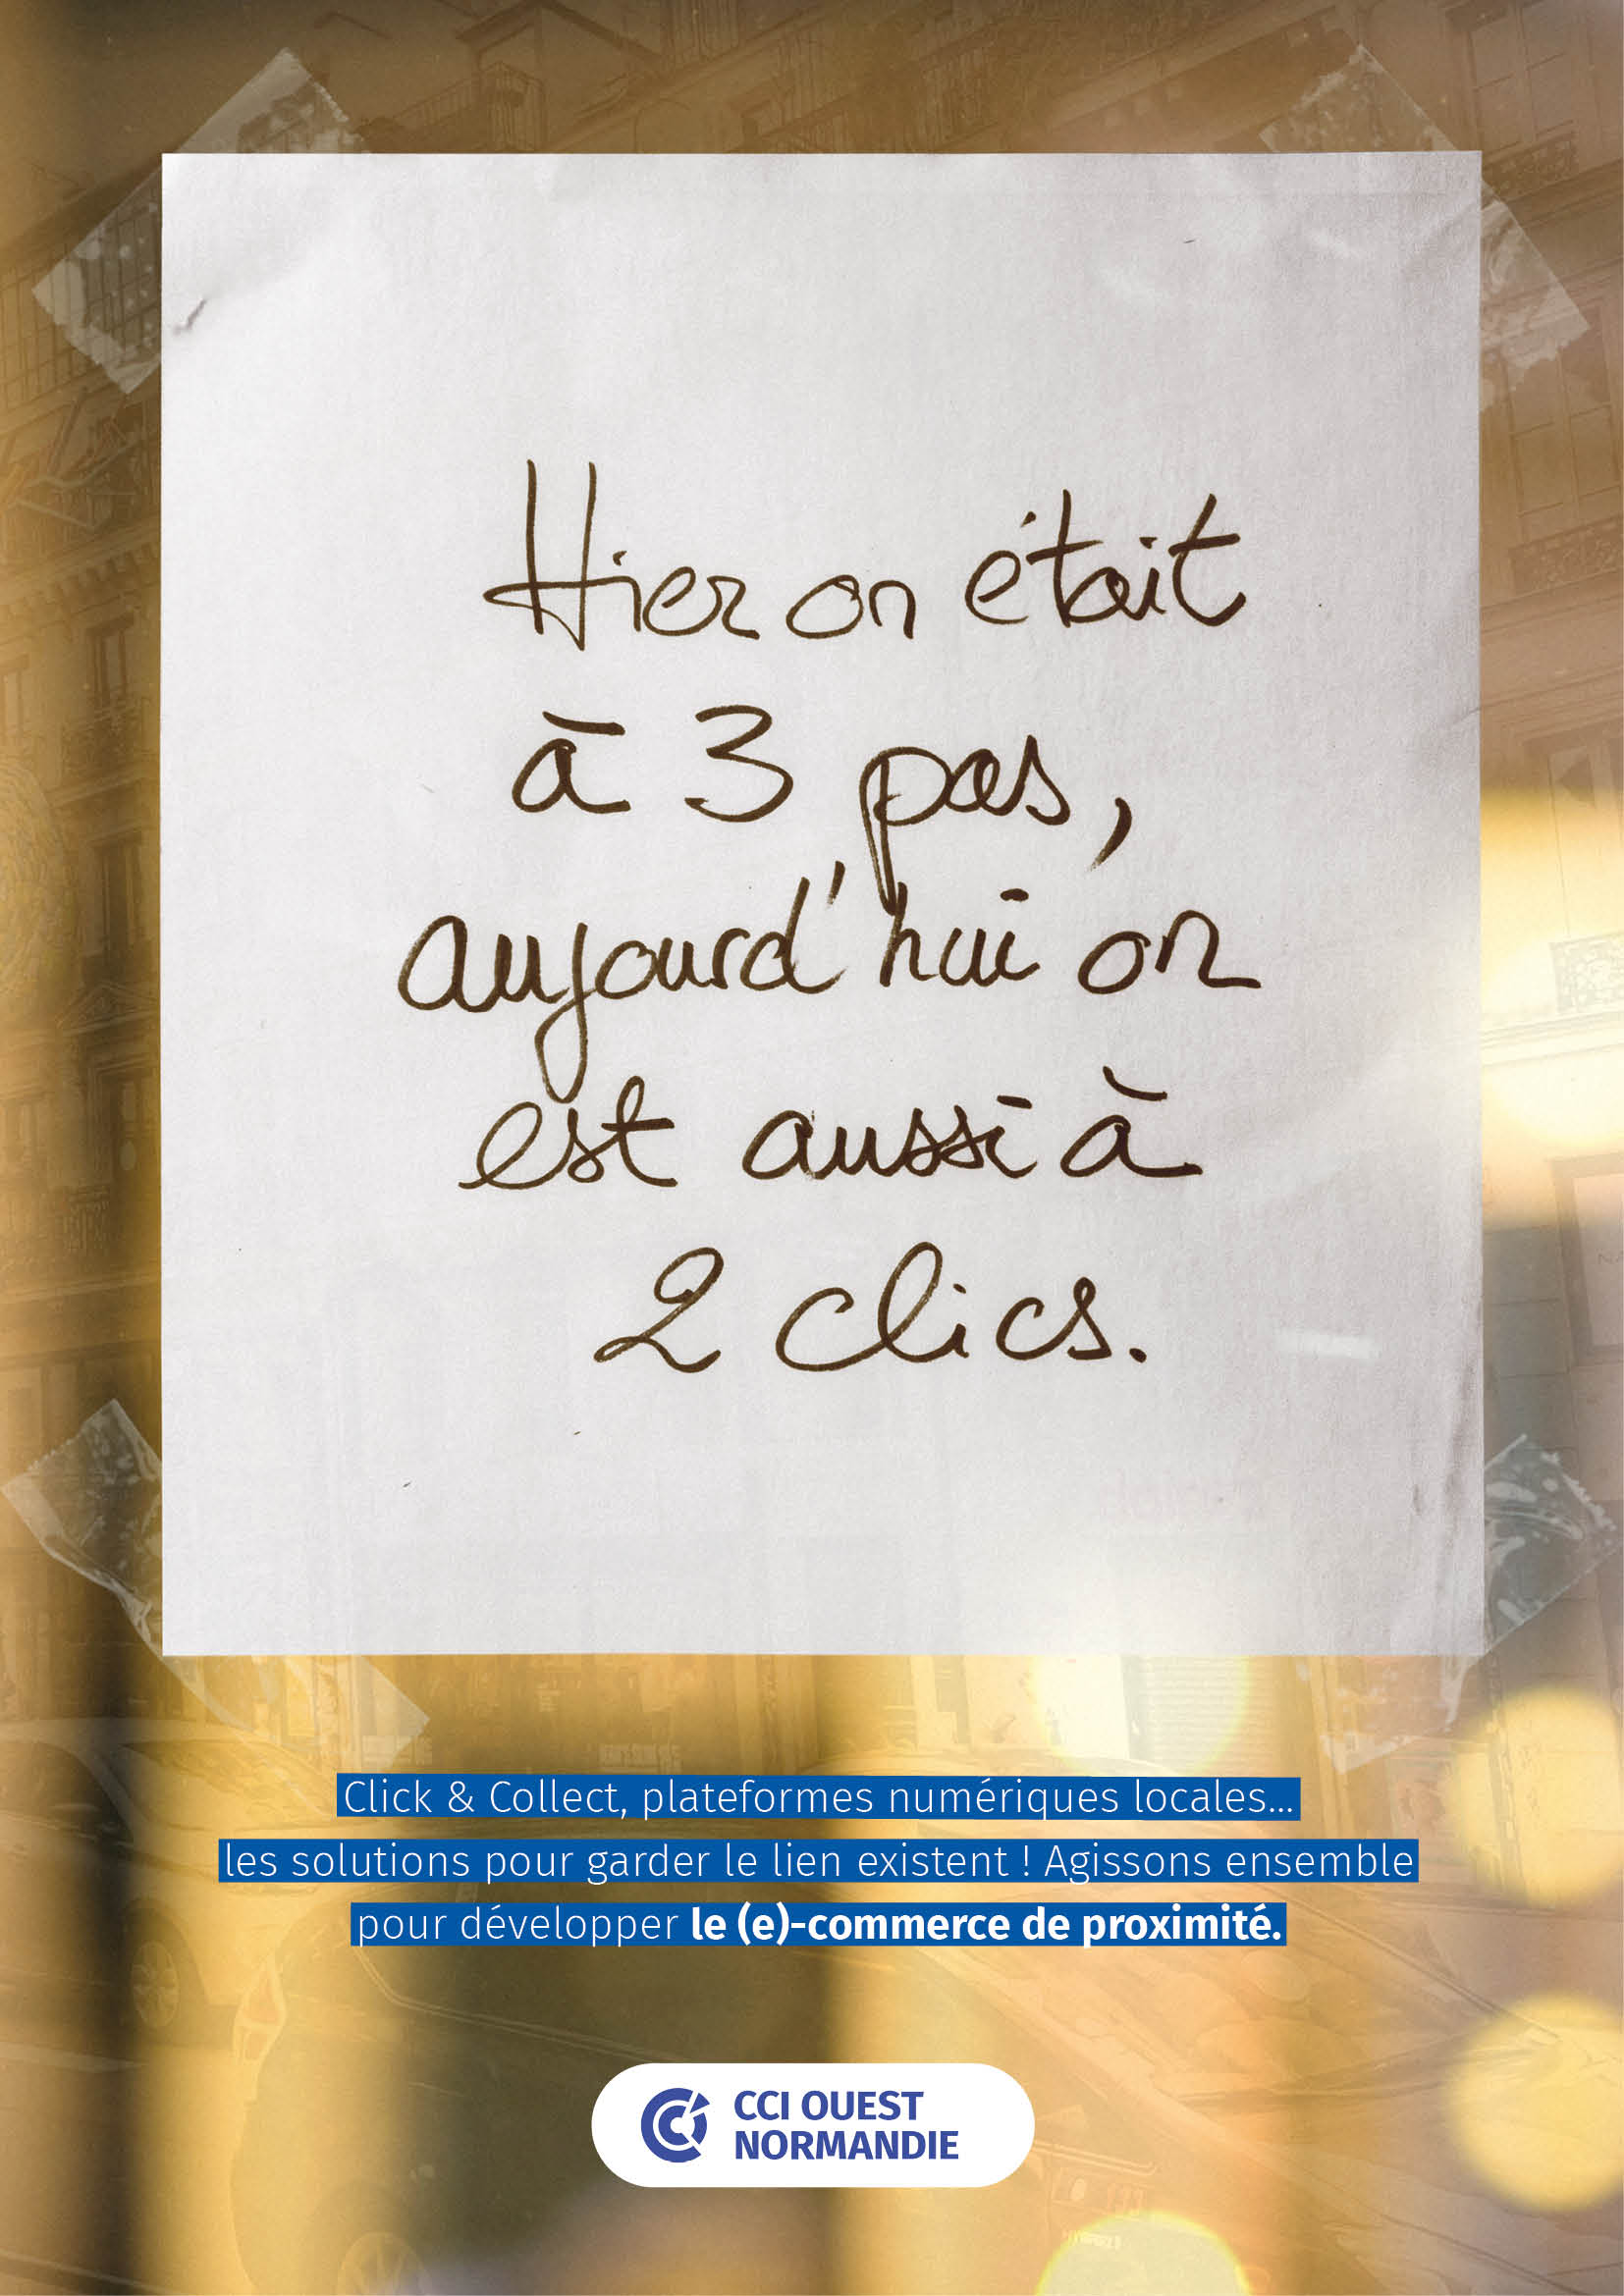 Hier on était
à 3 pas,
aujourd'hui on
est aussi à
2 clics.
Click & Collect, plateformes numériques locales...
les solutions pour garder le lien existent ! Agissons ensemble
pour développer le (e)-commerce de proximité.
CCI OUEST
NORMANDIE